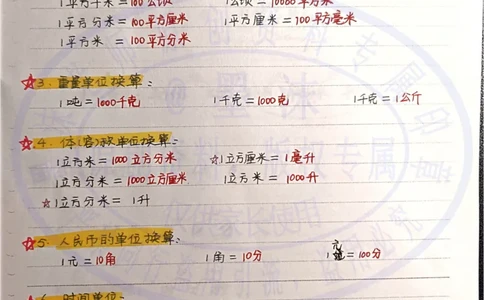 1平方千米=100公顷 1公顷=10000平方米
1平方分米=100平方厘米 1平方厘米=100平方毫米
1平方米=100平方分米
☆3.重量单位换算:
1吨=1000千克 1千克=1000克 1千克=1公斤
☆4.体(容)积单位换算:
1立方米=1000立方分米 ☆1立方厘米=1毫升
1立方分米=1000立方厘米 1立方米=1000升
☆1立方分米=1升
☆5.人民币的单位换算:
1元=10角 1角=10分 1元=100分
☆6.时间单位: